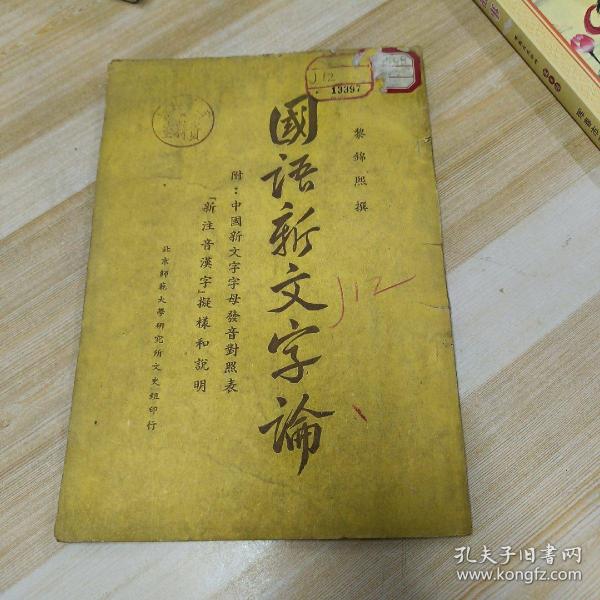 黎錦熙撰
國語新文字論
附：中國新文字字母發音對照表
「新注音漢字」擬樣和說明
北京師範大學研究所文史組印行
J12
13397
J12
孔夫子旧书网
www.kongfz.com